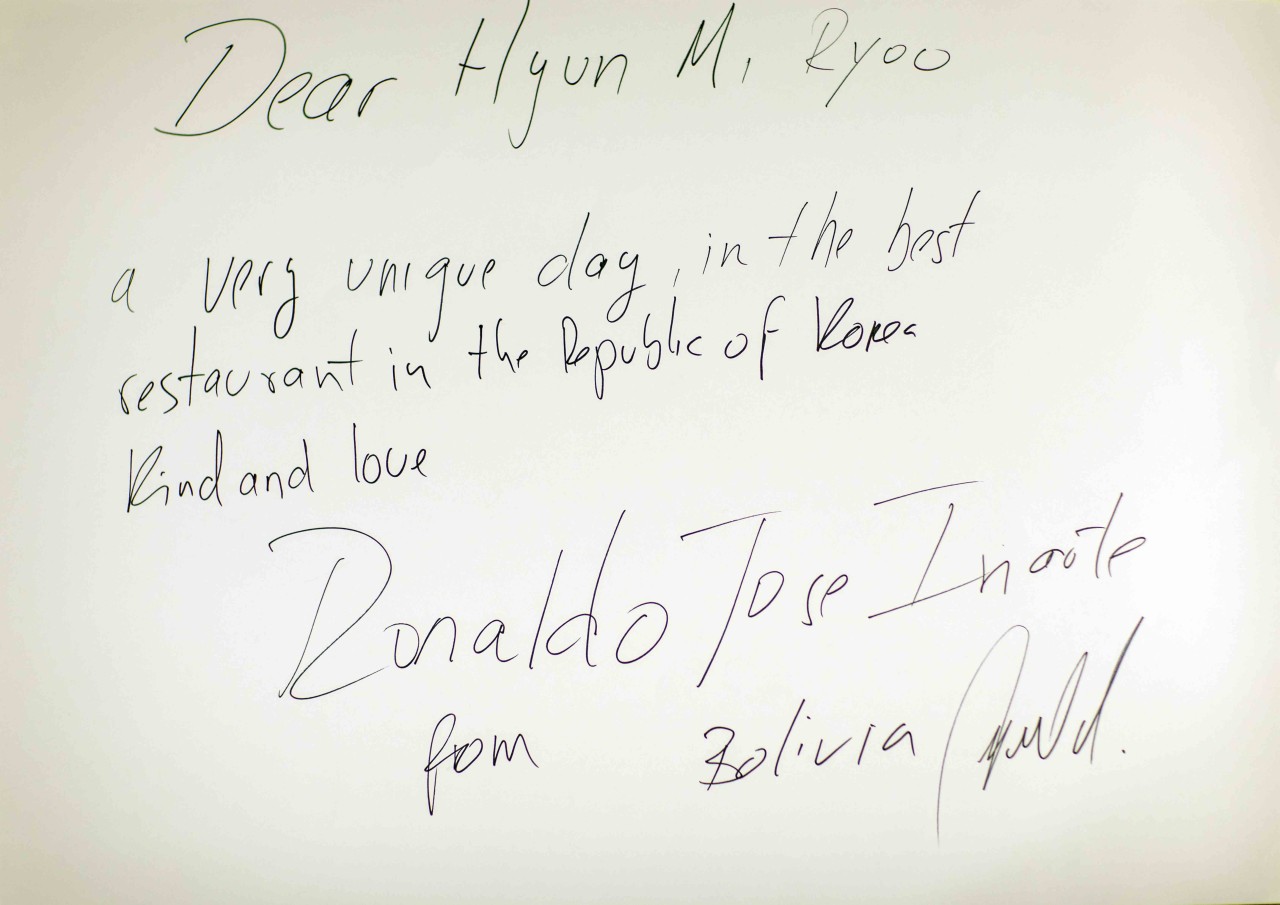 Dear Hyun M. Ryoo
a very unique day, in the best
restaurant in the Republic of Korea
Kind and love
Ronaldo Jose
from Bolivia